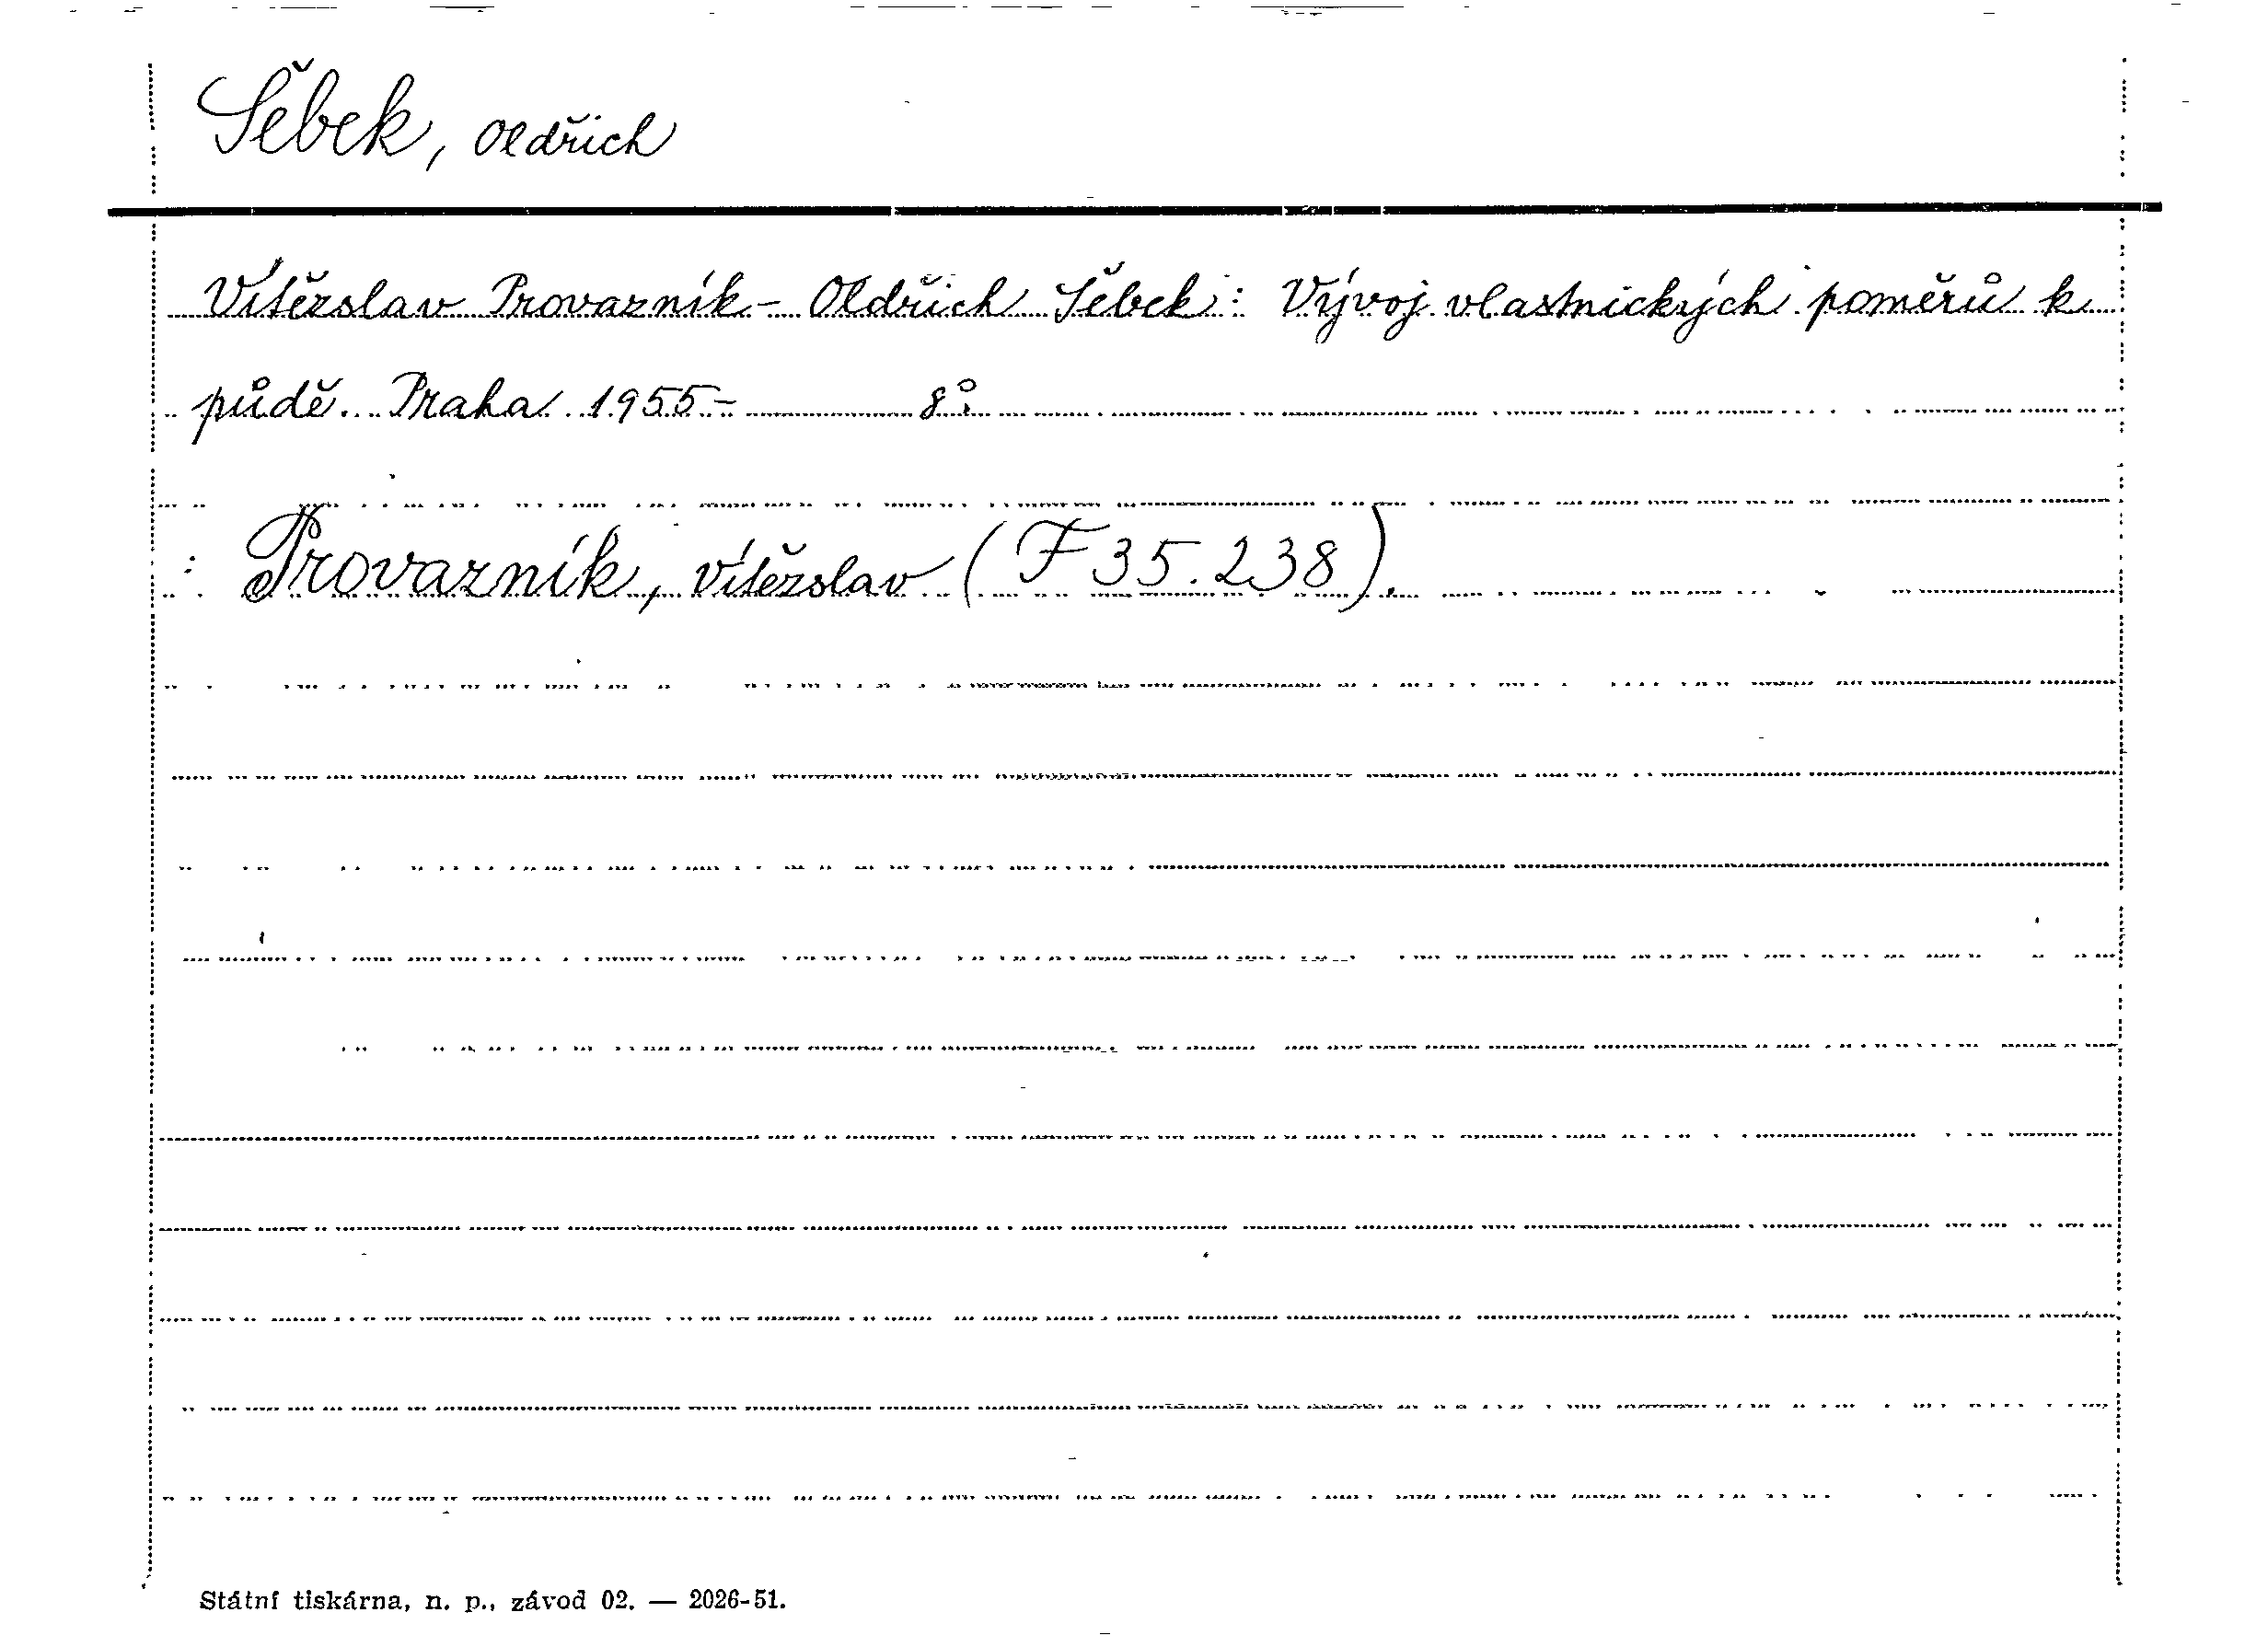 Šebek, Oldřich
Vítězslav Provazník - Oldřich Šebek: Vývoj vlastnických poměrů k
půdě. Praha 1955- 8°.
: Provazník, Vítězslav (F 35.238).
Státní tiskárna, n. p., závod 02. — 2026-51.